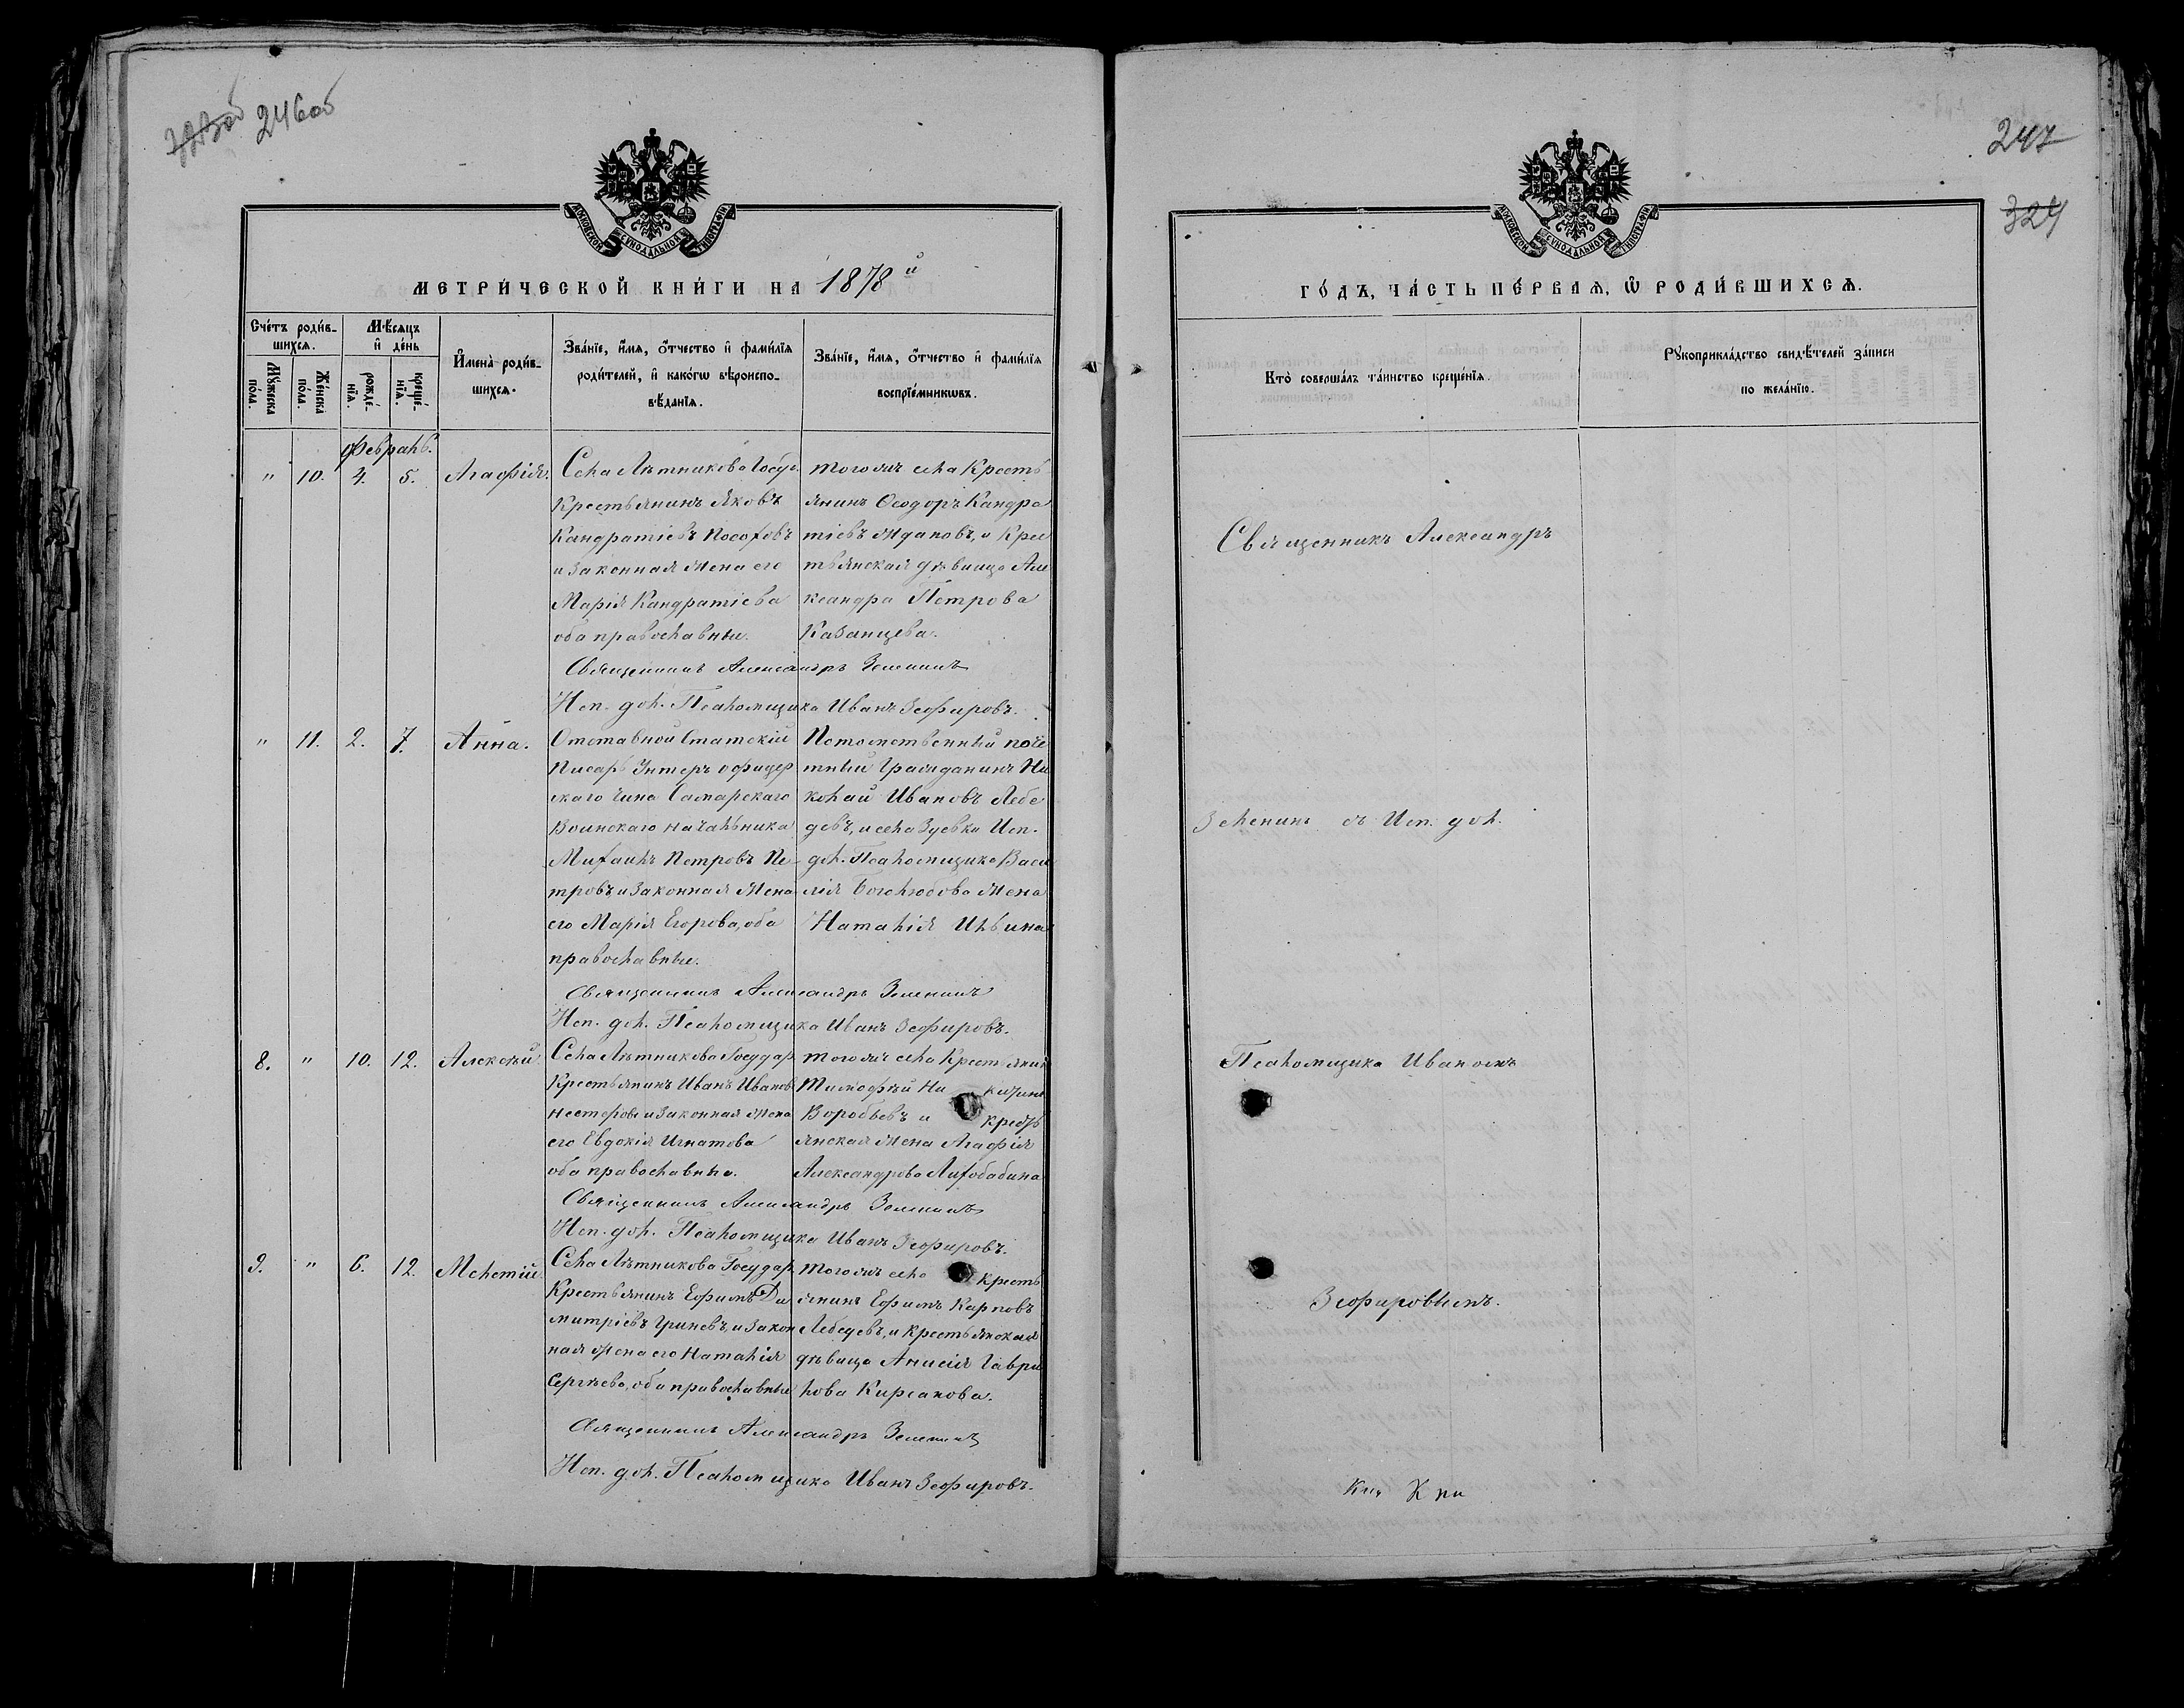 246об
МОСКОВСКОЙ СѴНОДАЛЬНОЙ ТИПОГРАФІИ
МЕТРИ́ЧЕСКОЙ КНИ́ГИ НА 1878й
Сче́тъ роди́в-
шихсѧ.
Мѣ́сѧцъ
и҆ де́нь
Мꙋ́жеска
пола.
Же́нска
пола.
рожде́-
нїѧ.
креще́-
нїѧ.
И҆мена̀ роди́в-
шихсѧ.
Зва́нїе, и҆́мѧ, ѻ҆́тчество и҆ фами́лїѧ
роди́телей, и҆ како́гѡ вѣроиспо-
вѣ́данїѧ.
Зва́нїе, и҆́мѧ, ѻ҆́тчество и҆ фами́лїѧ
воспрїе́мникѡвъ.
Февраль.
" 10. 4. 5. Агафія.
Села Лѣтникова Госуд.
Крестьянинъ Яковъ
Кандратіевъ Посоховъ
и законная жена его
Марія Кандратіева
оба православные.
тогожъ села Кресть
янинъ Ѳеодоръ Кандра
тіевъ Ждановъ, и Крес
тьянская дѣвица Але
ксандра Петрова
Казанцева.
Священникъ Александръ Зеленинъ
Исп. дол. Псаломщика Иванъ Зефировъ.
" 11. 2. 7. Анна.
Отставной Статскій
Писарь Унтеръ офицер
скаго Чина Самарскаго
Воинскаго начальника
Михаилъ Петровъ Пе-
тровъ и законная жена
его Марія Егорова, оба
православные.
Потомственный поче
тный Гражданинъ Ни
колай Ивановъ Лебе
девъ, и села Зуевка Исп.
дол. Псаломщика Васи
лія Боголюбова жена
Наталія Ильина
Священникъ Александръ Зеленинъ
Исп. дол. Псаломщика Иванъ Зефировъ.
8. " 10. 12. Алексѣй.
Села Лѣтникова Государ.
Крестьянинъ Иванъ Иванов
Несторовъ и законная жена
его Евдокія Игнатова
оба православные.
тогожъ села Крестьянин
Тимофѣй Ни
Воробьевъ и
янская жена Агафія
Александрова Лихобабина
Священникъ Александръ Зеленинъ
Исп. дол. Псаломщика Иванъ Зефировъ.
9. " 6. 12. Мелетій.
Села Лѣтникова Государ.
Крестьянинъ Ефимъ Ди
митріевъ Гриневъ, и закон
ная жена его Наталія
Сергѣева, оба православные
тогожъ села Кресть
янинъ Ефимъ Карповъ
Лебедевъ, и крестьянская
дѣвица Анисія Гаври
лова Кирсанова.
Священникъ Александръ Зеленинъ
Исп. дол. Псаломщика Иванъ Зефировъ.
247
324
МОСКОВСКОЙ СѴНОДАЛЬНОЙ ТИПОГРАФІИ
ГО́ДЪ, ЧА́СТЬ ПЕ́РВАѦ, Ѡ҆ РОДИ́ВШИХСѦ.
Кто̀ соверша́лъ та́инство креще́нїѧ.
Рꙋкоприкла́дство свидѣ́телей за́писи
по жела́нїю.
Священникъ Александръ
Зеленинъ съ Исп. дол.
Псаломщика Иваномъ
Зефировымъ.